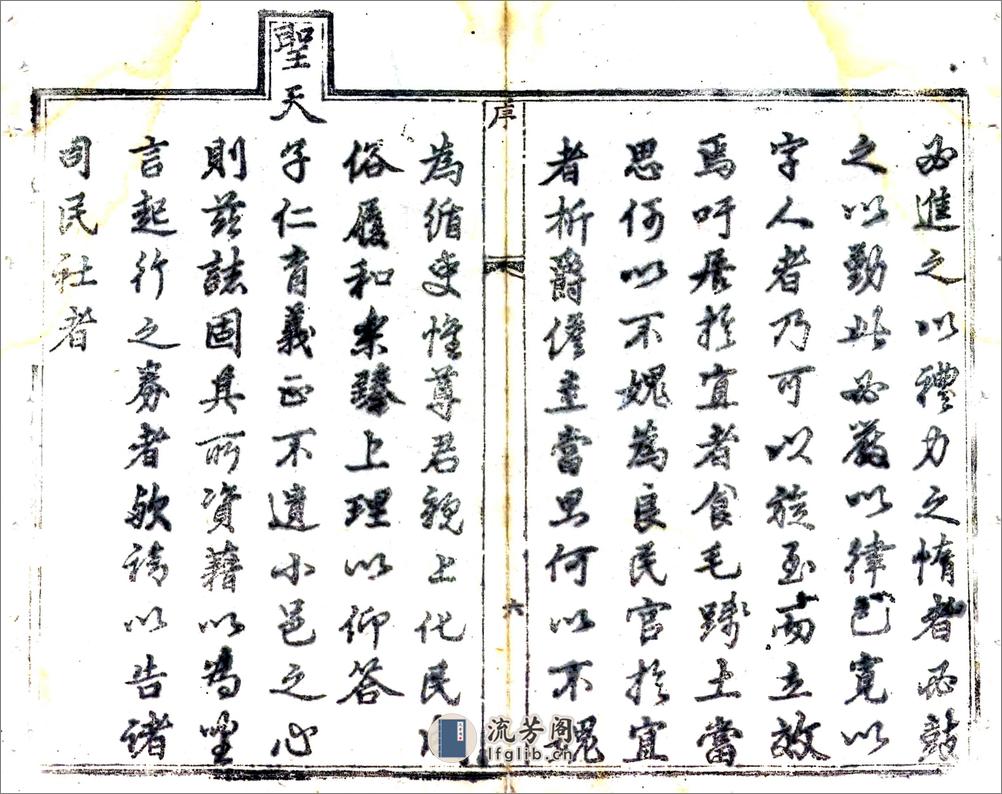 必進之以禮力之惰者必鼓
之以勤此必嚴以律己寬以
字人者乃可以旋至而立效
焉吁居於宜者食毛踐土當
思何以不媿為良民官於宜
者析爵儋圭當思何以不媿
序
六
為循吏惟尊君親上化民
俗履和樂臻上理以仰答
聖天子仁育義正不遺小邑之心
則茲誌固其所資藉以為坐
言起行之券者歟請以告諸
司民社者
流芳阁
lfglib.cn